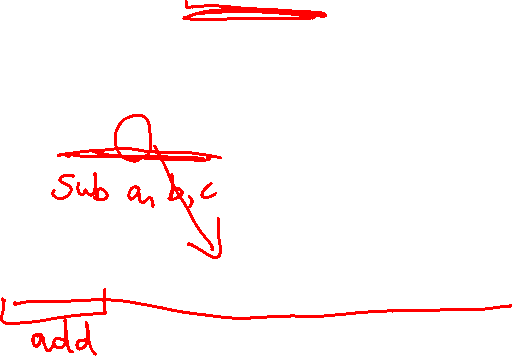 sub a, b, c
add